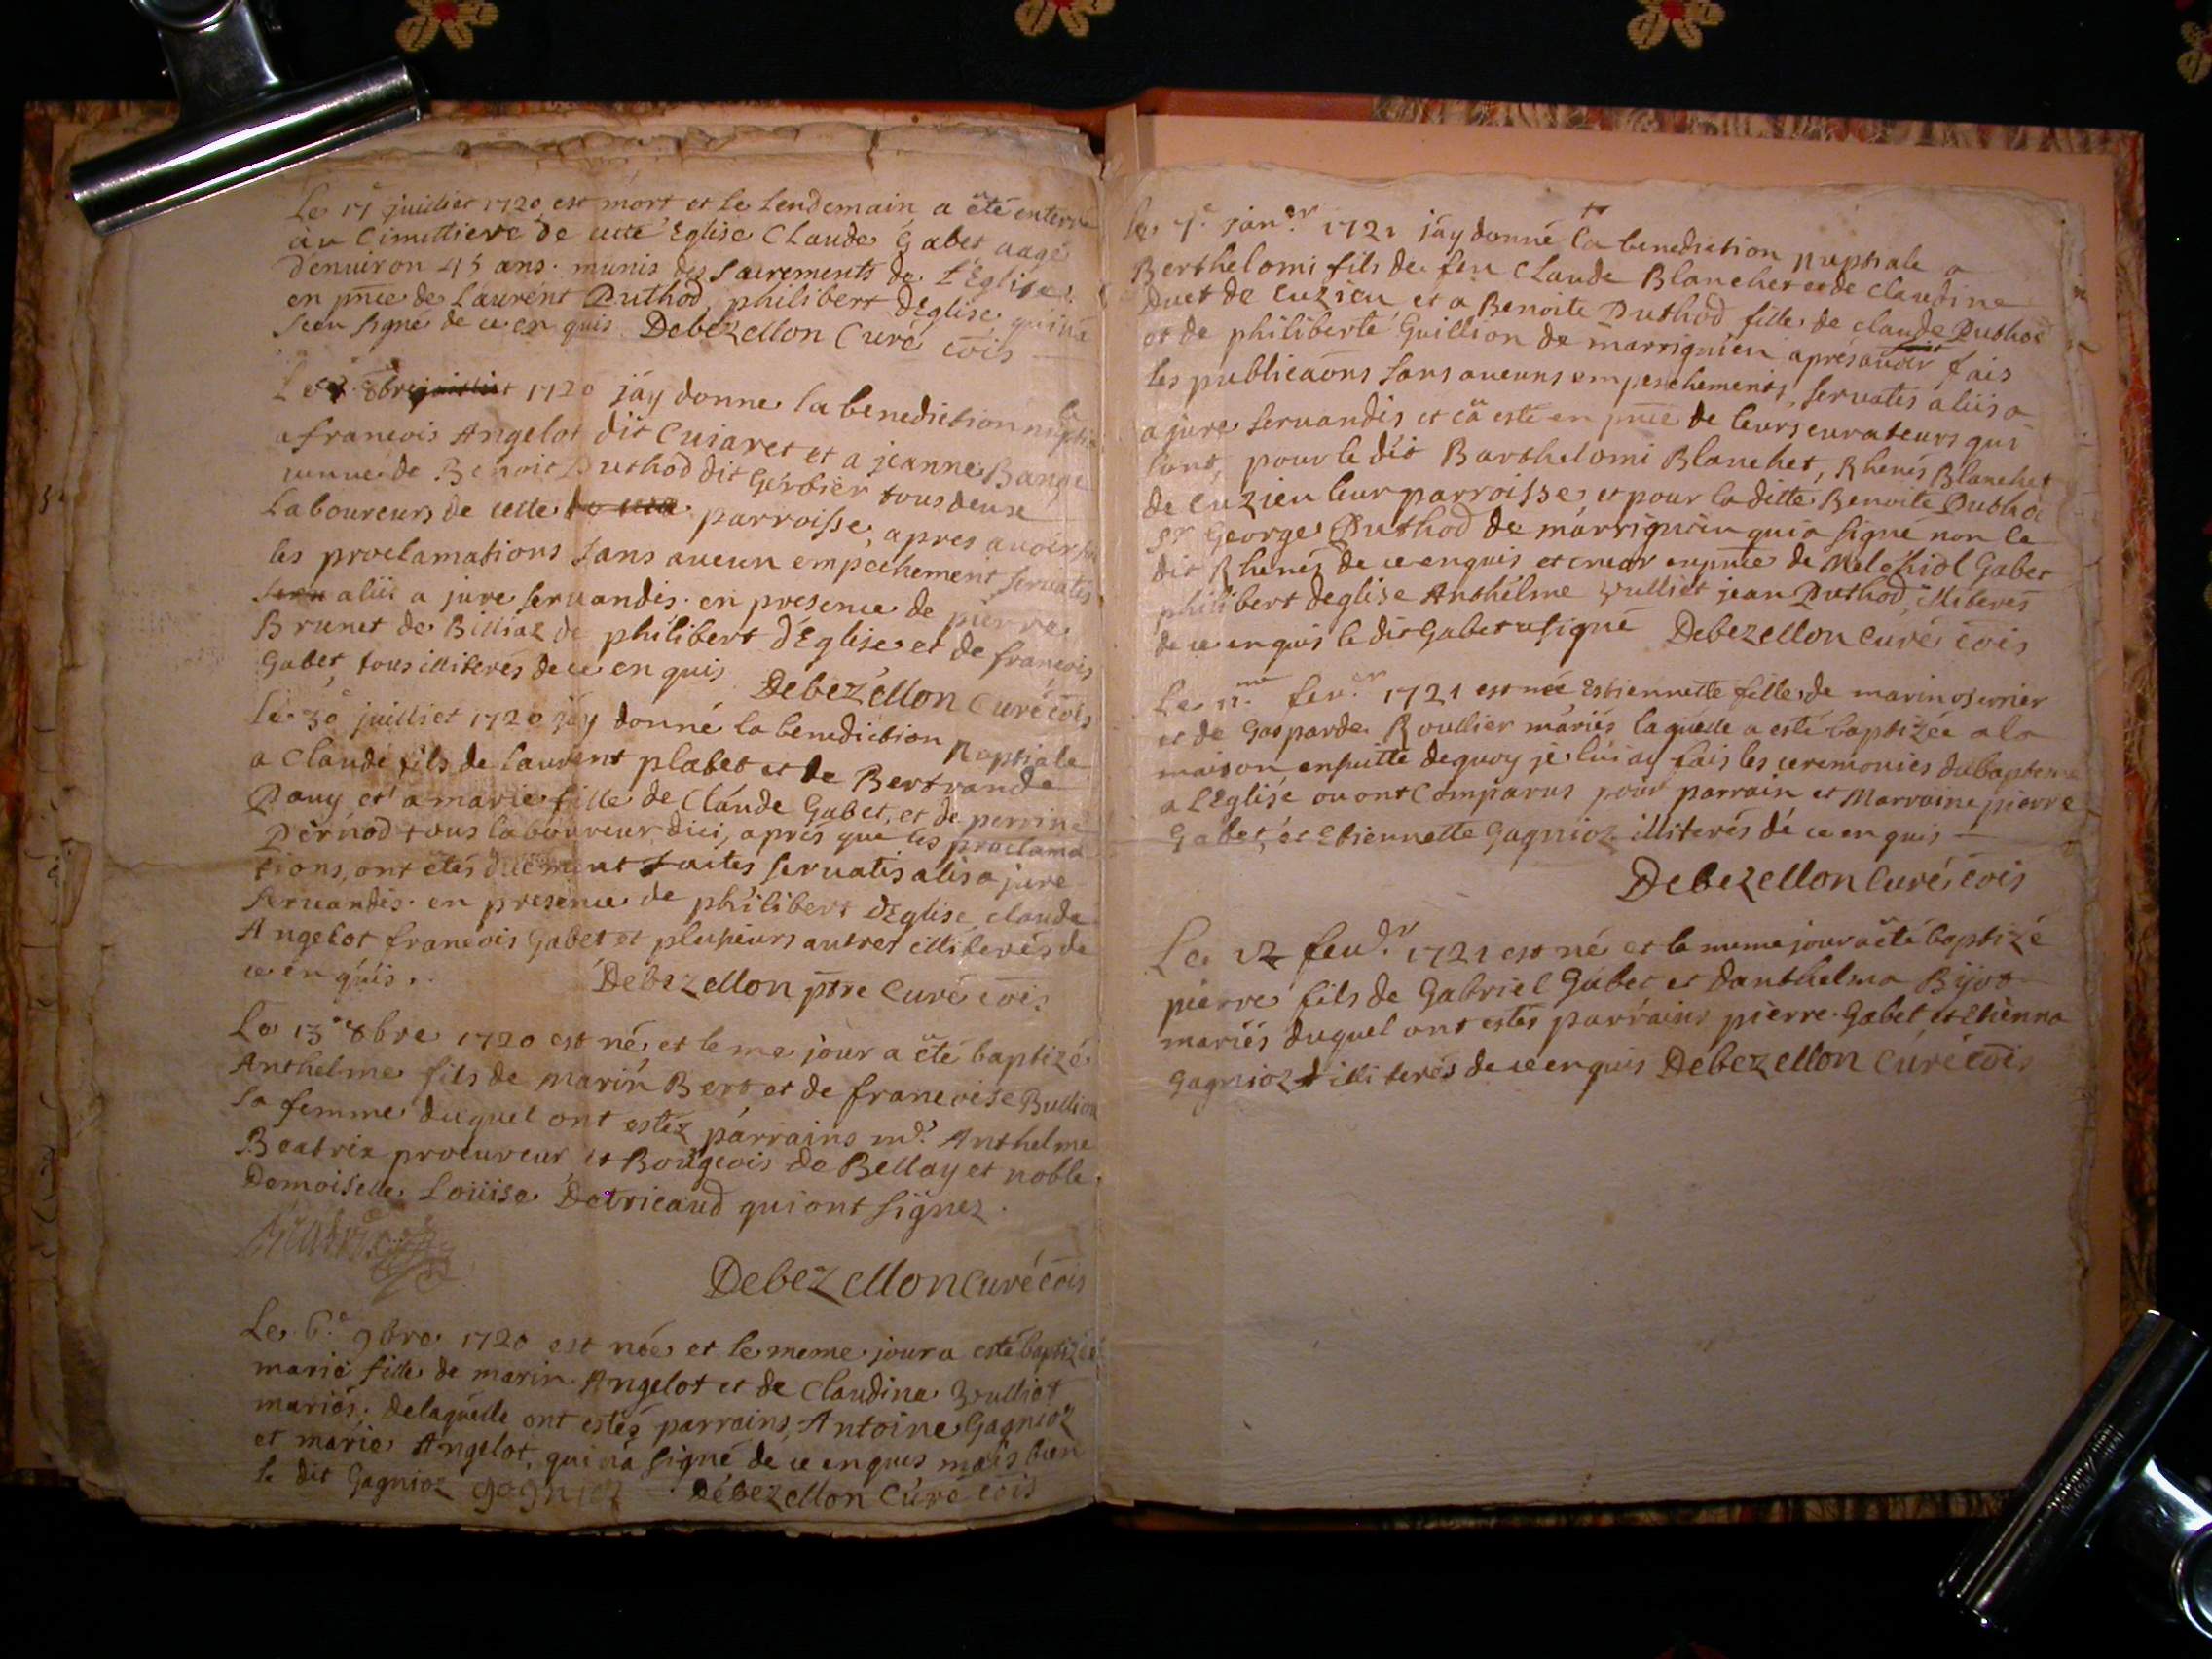 Le 17 juilliet 1720 est mort et le Lendemain a été enterré
au Cimittiere de cette Eglise Claude Gabet aagé
d'enuiron 45 ans. munis des sacrements de L'Eglise.
en pnce de Laurent Duthod, philibert dEglise qui na
sceu signé de ce en quis Debezellon Curé cois
Le 8bre 1720 jáy donne la benediction
a francois Angelot dit Cuiaret et a jeanne Bange
ueuue de Benoit Duthod dit Gerbier tous deux
Laboureurs de cette parroisse, apres auoir
les proclamations sans aucun empechement seruatis
aliis a jure seruandis. en presence de pierre
Brunet de Billiaz de philibert dEglise et de francois
Gabet, tous illiterés de ce en quis Debezellon Curé cois
Le 30 juilliet 1720 jáy donné la benediction nuptiale
a Claude fils de laurent plabet et de Bertrande
Dauy et a marie fille de Claude Gabet, et de perrine
Pernod tous laboureur dici, aprés que les proclama
tions, ont étés duëment faites seruatis aliis a jure
seruandis. en presence de philibert dEglise, claude
Angelot francois Gabet et plusieurs autres illiterés de
ce én quis. Debezellon ptre Curé cois.
Le 13e 8bre 1720 est né, et le me jour a été baptizé
Anthelme fils de marin Bert et de francoise Bullion
sa femme duquel ont estéz parrains md. Anthelme
Beatrix procureur et Bourgeois de Bellay et noble
Demoiselle Loüise Detricaud qui ont signez.
Debezellon Curé cois
Le 6e 9bre 1720 est née et le meme jour a esté baptizée
marie fille de marin Angelot et de Claudine Vulliot
mariés; delaquelle ont estés parrains, Antoine Gagnioz
et marie Angelot, qui na signé de ce enquis mais bien
le dit Gagnioz gognioz Debezellon Curé cois
Le 7e janer 1721 jáy donné la benediction nuptiale a
Berthelomi fils de feu Claude Blanchet et de Claudine
Duet de Cuzieu et a Benoite Duthod fille de claude Duthod
et de philiberte Guillion de marrignieu aprés auoir fais
les publicaons sans aucuns empeschements, seruatis aliis a
a jure seruandis et cä esté en pnce de leurs curateurs qui
sont, pour le dit Barthelomi Blanchet, Rhenés Blanchet
de Cuzieu leur parroisse, et pour la ditte Benoite Duthod
Sr George Duthod de marrignieu qui a signé non le
dit Rhenés de ce enquis et encor en pnce de Melchiol Gabet
philibert deglise Anthélme Vulliet jean Duthod, illiterés
de ce enquis le dit Gabet a signé Debezellon Curé cois
Le 11me feuer 1721 est née Estiennette fille de marin
et de Gasparde Roullier máriés laquelle a esté baptizée a la
maison ensuitte dequoy je lui ay fais les ceremonies du baptesme
a l'Eglise ou ont Comparus pour parrain et Marraine pierre
Gabet, et Etiennette Gagnioz illiterés dé ce enquis
Debezellon Curé cois
Le 12 feuer 1721 est né et le meme jour a été baptizé
pierre fils de Gabriel Gabet et danthelma Bijot
mariés duquel ont estés parrains pierre Gabet et Etienna
Gagnioz illiterés de ce enquis Debezellon Curé cois